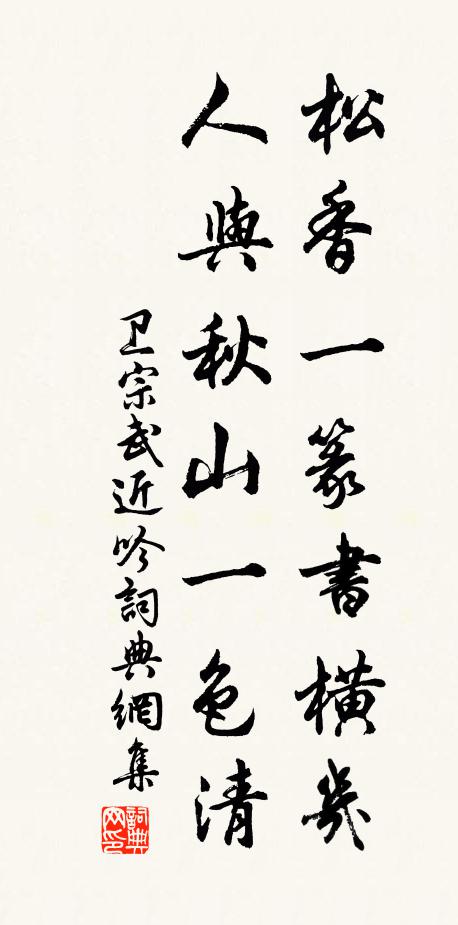 松香一篆書橫幾
人與秋山一色清
卫宗武近吟詞典網集
詞典
网印